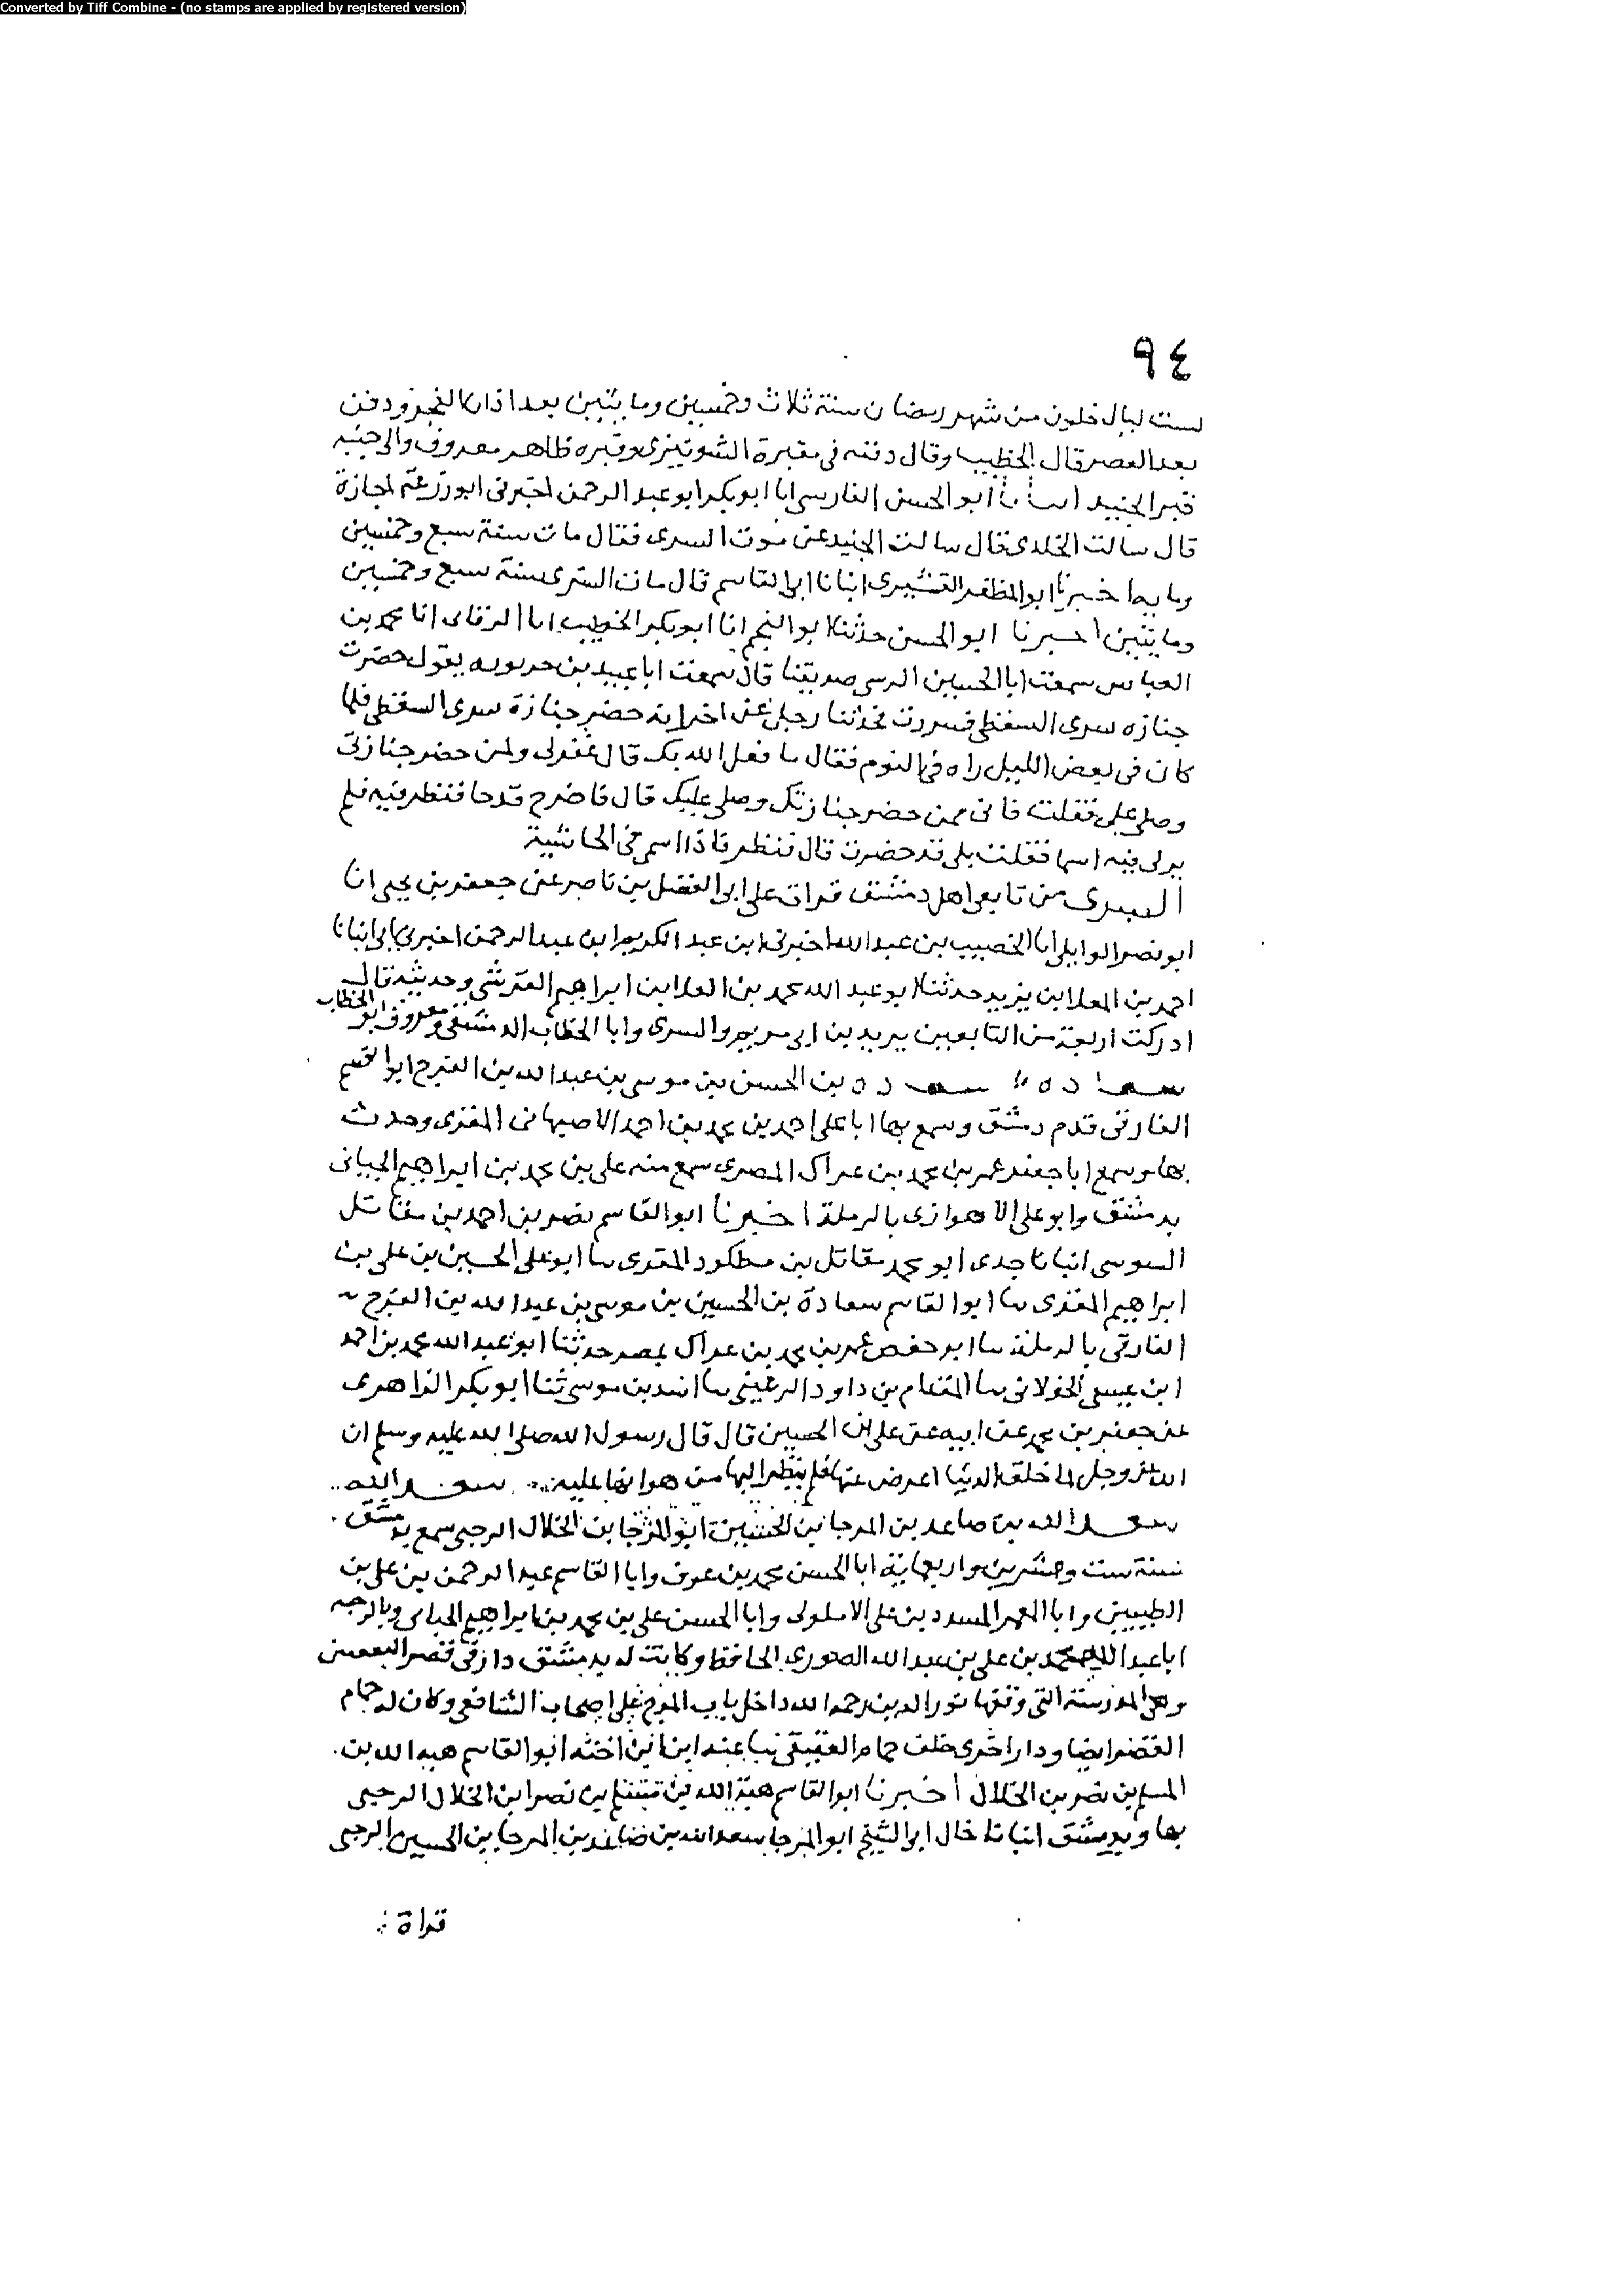 Converted by Tiff Combine - (no stamps are applied by registered version)
٩٤
لست ليال خلون من شهر رمضان سنة ثلاث وخمسين ومايتين بعد اذان الفجر ودفن
بعد العصر قال الخطيب وقال دفنه في مقبرة الشونيزي وقبره ظاهر معروف والى جنبه
قبر الجنيد انبأنا ابو الحسن الفارسي انا ابو بكر ابو عبد الرحمن اخبرني ابو زرعة اجازة
قال سالت الخلدى قال سالت الجنيد عن موت السرى فقال مات سنة سبع وخمسين
ومايه اخبرنا ابو المظفر القشيرى انبانا ابى القاسم قال مات السرى سنة سبع وخمسين
ومايتين اخبرنا ابو الحسن حدثنا ابو النجم انا ابو بكر الخطيب انا انا محمد بن
العباس سمعت ابا الحسين صديقنا قال سمعت ابا عبيد بن حربويه يقول حضرت
جنازه سرى السقطى فسررت فحدثنا رجل عن اخر انه حضر جنازة سرى السقطى فلما
كان فى بعض الليل راه فى النوم فقال ما فعل الله بك قال غفرلى ولمن حضر جنازتى
وصلى على فقلت فانى ممن حضر جنازتك وصلى عليك قال فاخرج فنظر فيه فلم
يرلى فيه اسما فقلت بلى قد حضرت قال فنظر فاذا اسمى فى الحاشية
السرى من تابعى اهل دمشق قرات على ابى الفضل بن ناصر عن جعفر بن يحيى انا
ابو نصر الوايلى انا الخصيب بن عبد الله اخبرنى ابن عبد الكريم ابن عبد الرحمن اخبرنى ابى انبانا
احمد بن المعلا بن يزيد حدثنا ابو عبد الله محمد بن العلا بن ابراهيم القرشى وحديثه قال
ادركت اربعة من التابعين يزيد بن ابى مريم والسرى وابا الخطاب الدمشقى ومعروف ابو الخطاب
سعاده سعاده بن الحسن بن موسى بن عبد الله بن الفرج ابو القسم
الفارقى قدم دمشق وسمع بها ابا على احمد بن محمد بن احمد الاصبهانى المقرى وحدث
بها وسمع ابا جعفر عمر بن محمد بن عراك المصرى سمع منه على بن محمد بن ابراهيم الحنائى
بدمشق وابو على الاهوازى بالرملة اخبرنا ابو القاسم نصر بن احمد بن مقاتل
السوسى انبانا جدى ابو محمد مقاتل بن مطكود المقرى سا ابو على الحسين بن على بن
ابراهيم المقرى سا ابو القاسم سعادة بن الحسين بن موسى بن عبد الله بن الفرج
الفارقى بالرملة سا ابو حفص عمر بن محمد بن عراك بمصر حدثنا ابو عبد الله محمد بن احمد
ابن عيسى الخولانى سا المقدام بن داود الرعينى سا اسد بن موسى ثنا ابو بكر الزاهرى
عن جعفر بن محمد عن ابيه عن على بن الحسين قال قال رسول الله صلى الله عليه وسلم ان
الله عز وجل لما خلق الدنيا اعرض عنها فلم ينظر اليها من هوانها عليه سعد الله
سعد الله بن صاعد بن المرجا بن الحسين ابو المرجا بن الخلال الرحبى سمع بدمشق
سنة ست وعشرين واربعماية ابا الحسن محمد بن عوف وابا القاسم عبد الرحمن بن على بن
وابا المسدد بن على الاملوكى وابا الحسن على بن محمد بن ابراهيم الحنائى وبالرحبه
ابا عبد الله محمد بن على بن عبد الله الصورى الحافظ وكانت له بدمشق دار فى قصر
وهى المدرسة التى وقفها نور الدين رحمه الله داخل باب الفرج على اصحاب الشافعى وكان له حمام
القصر ايضا ودارا اخرى خلف حمام العقيقى عند ابن اخته ابو القاسم هبه الله بن
المسلم بن نصر بن الخلال اخبرنا ابو القاسم هبة الله بن بن نصر ابن الخلال الرحبى
بها وبدمشق انبانا خال ابى الشيخ ابو المرجا سعد الله بن صاعد بن المرجا بن الحسين الرحبى
قراة